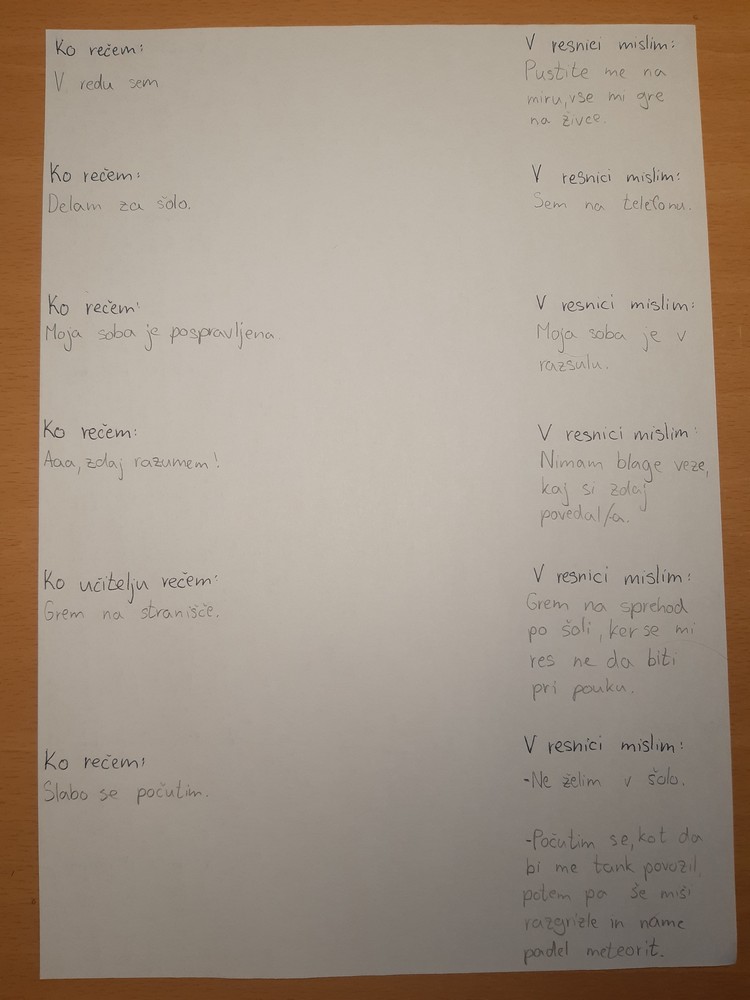 Ko rečem:
V redu sem
V resnici mislim:
Pustite me na
miru, vse mi gre
na živce.
Ko rečem:
Delam za šolo.
V resnici mislim:
Sem na telefonu.
Ko rečem:
Moja soba je pospravljena.
V resnici mislim:
Moja soba je v
razsulu.
Ko rečem:
Aaa, zdaj razumem!
V resnici mislim:
Nimam blage veze,
kaj si zdaj
povedal/-a.
Ko učitelju rečem:
Grem na stranišče.
V resnici mislim:
Grem na sprehod
po šoli, ker se mi
res ne da biti
pri pouku.
Ko rečem:
Slabo se počutim.
V resnici mislim:
-Ne želim v šolo.
-Počutim se, kot da
bi me tank povozil,
potem pa še miši
razgrizle in name
padel meteorit.